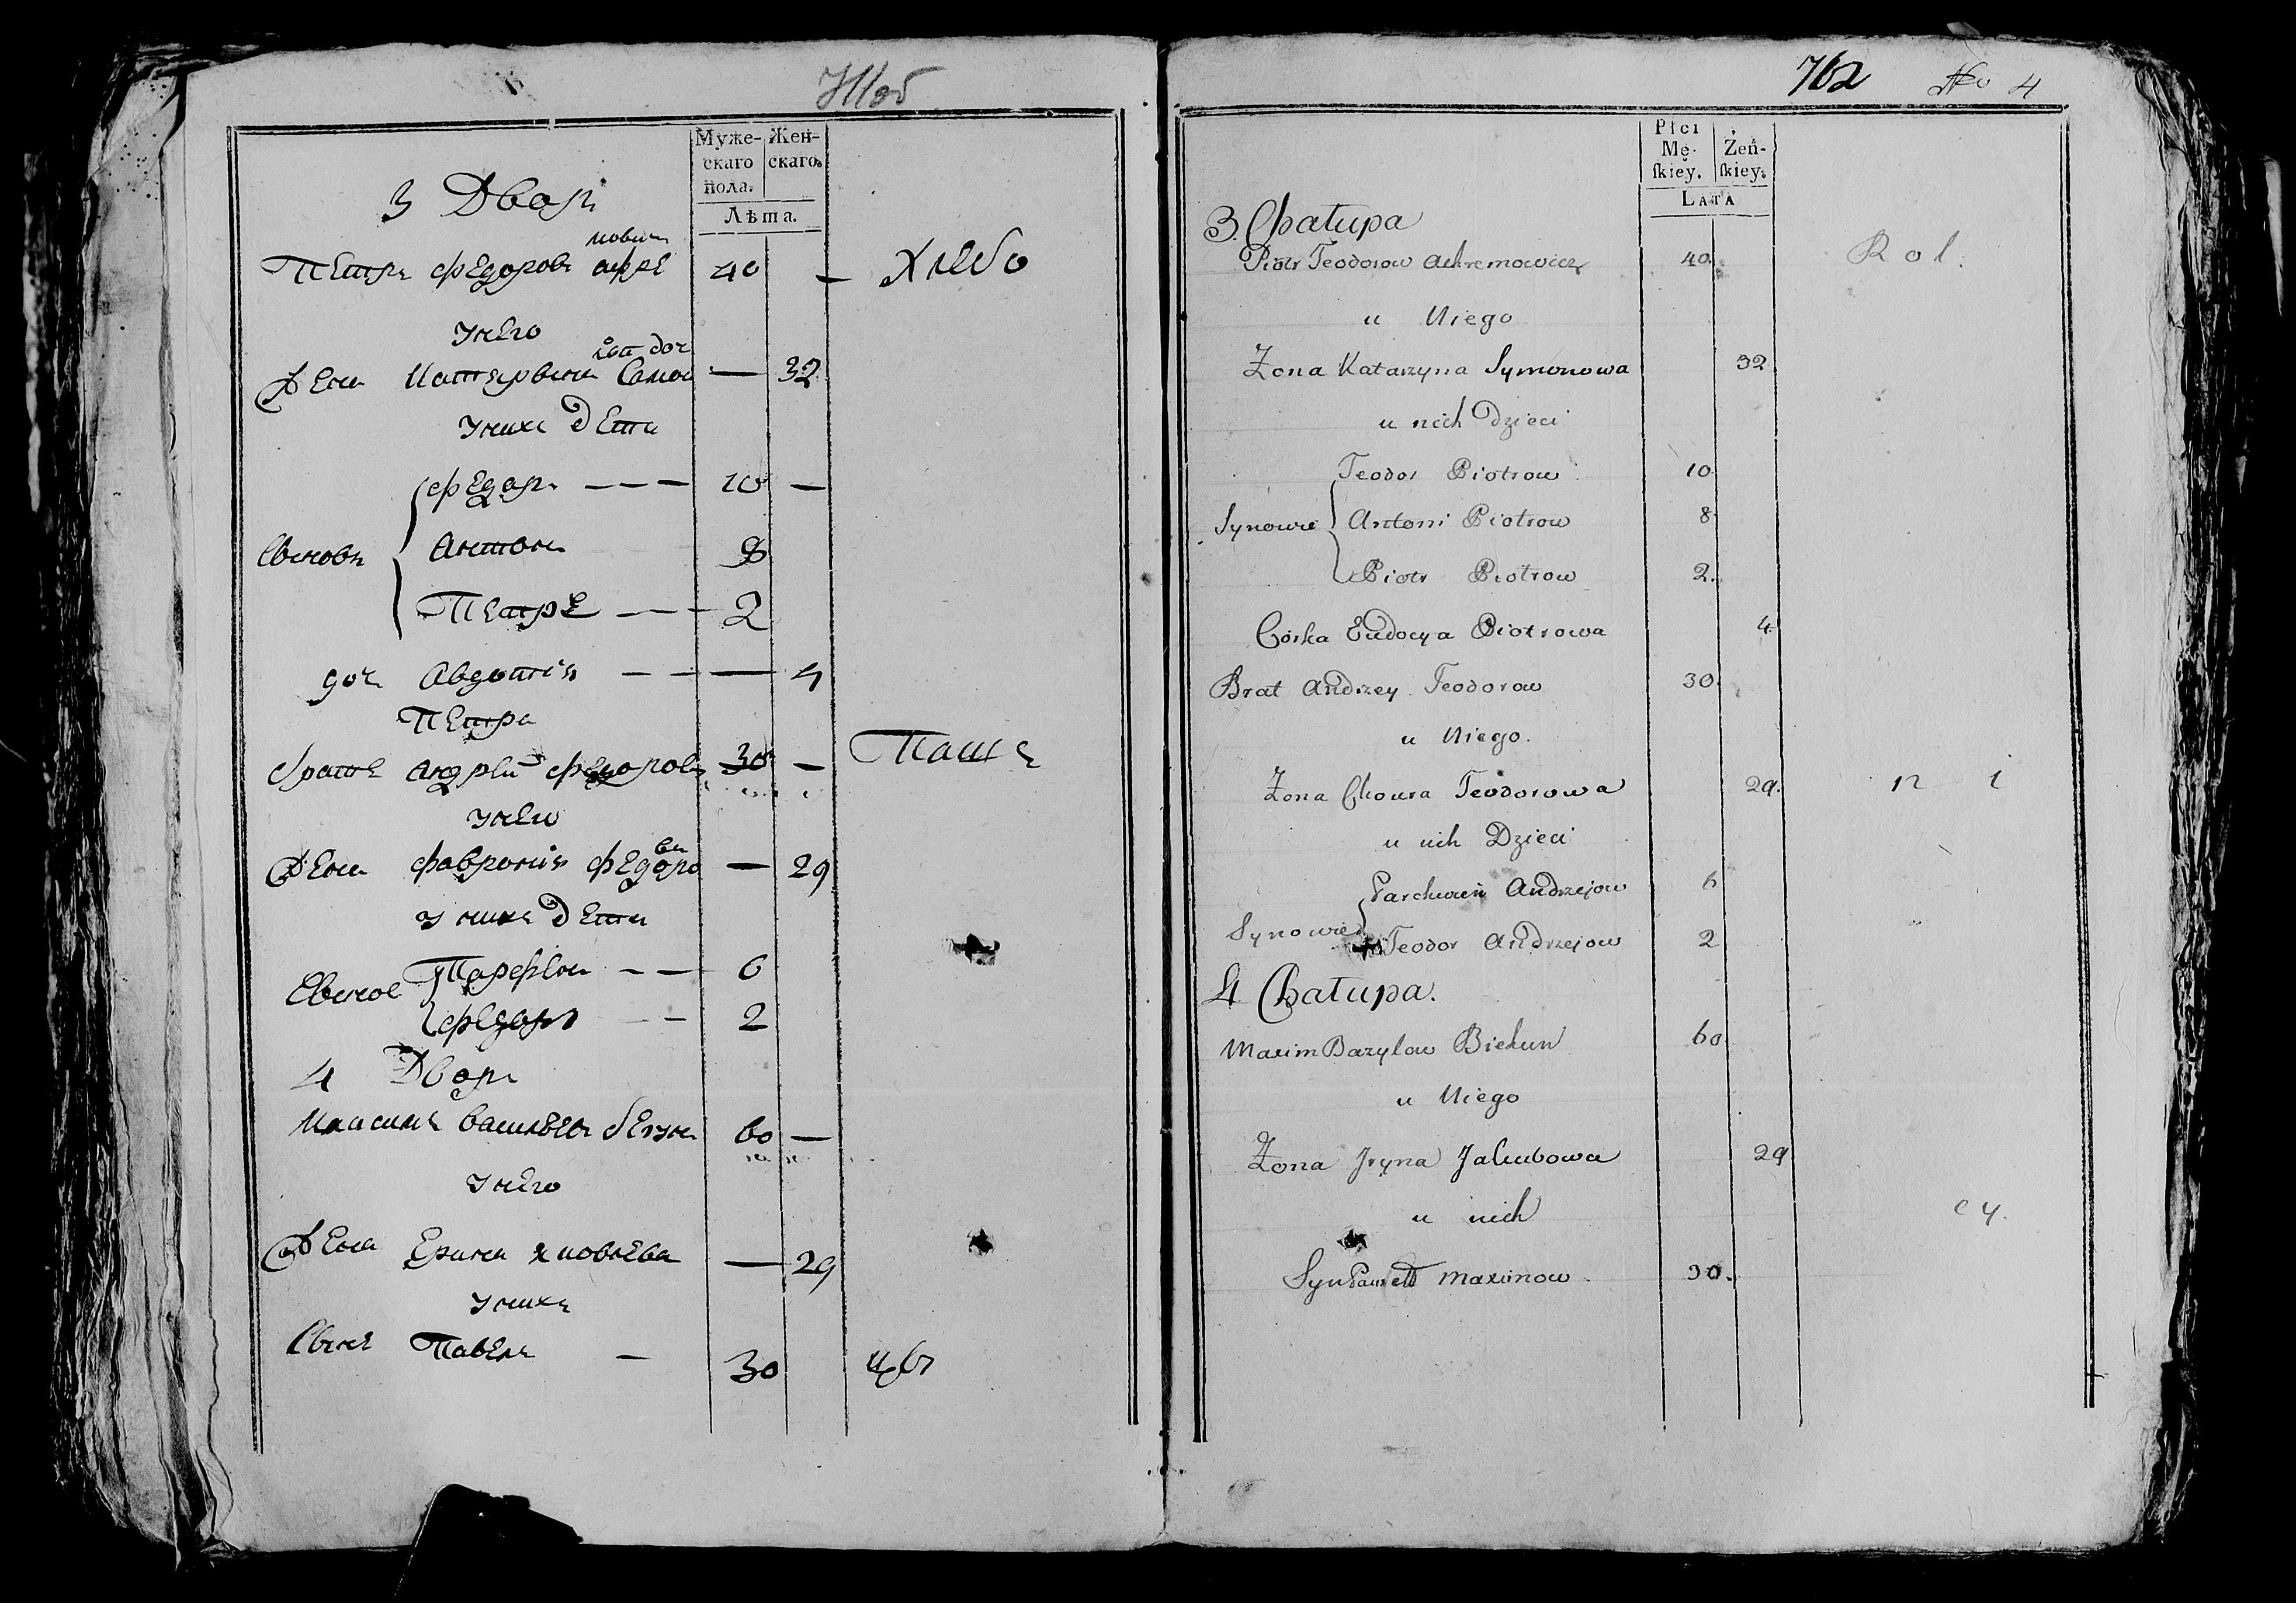 Муже-
скаго
пола.
Жен-
скаго.
Лѣта.
3 Дворъ
новичъ
Петръ Федоровъ Ахре 40 — Хлебо
У него
Жена Катерына Само 32
У нихъ дети
Федоръ — — — 10 —
Сыновъ Антонъ 8
Петръ — — — 2
доч Авдотія — — — 4
Петра
братъ Андрей Федоровъ 30 — Паш
У него
ва
Жена Фавронія Федоро — 29
У нихъ дети
Сынов Парфенъ — — 6
Федоръ — — 2
4 Дворъ
Максимъ Васильевъ Бегунъ 60 —
У него
Жена Ерина Яковлева — 29
У нихъ
Сынъ Павелъ — 30 цы
762 No 4
Płci
Mę-
ſkiey.
Żeń-
ſkiey.
LATA
3. Chatupa
Piotr Teodorow Achremowicz 40. Rol.
u Niego
Żona Katarzyna Symonowa 32
u nich Dzieci
Teodor Piotrow 10.
Synowie Antoni Piotrow 8
Piotr Piotrow 2.
Córka Eudocya Piotrowa 4.
Brat Andrzey Teodorow 30.
u Niego.
Żona Chowra Teodorowa 29. n i
u nich Dzieci
Parchwen Andrzejow 6
Synowie Teodor Andrzejow 2
4 Chatupa.
Maxim Bazylow Biehun 60.
u Niego
Żona Jryna Jakubowa 29
u nich cy.
Syn Paweł Maximow 30.